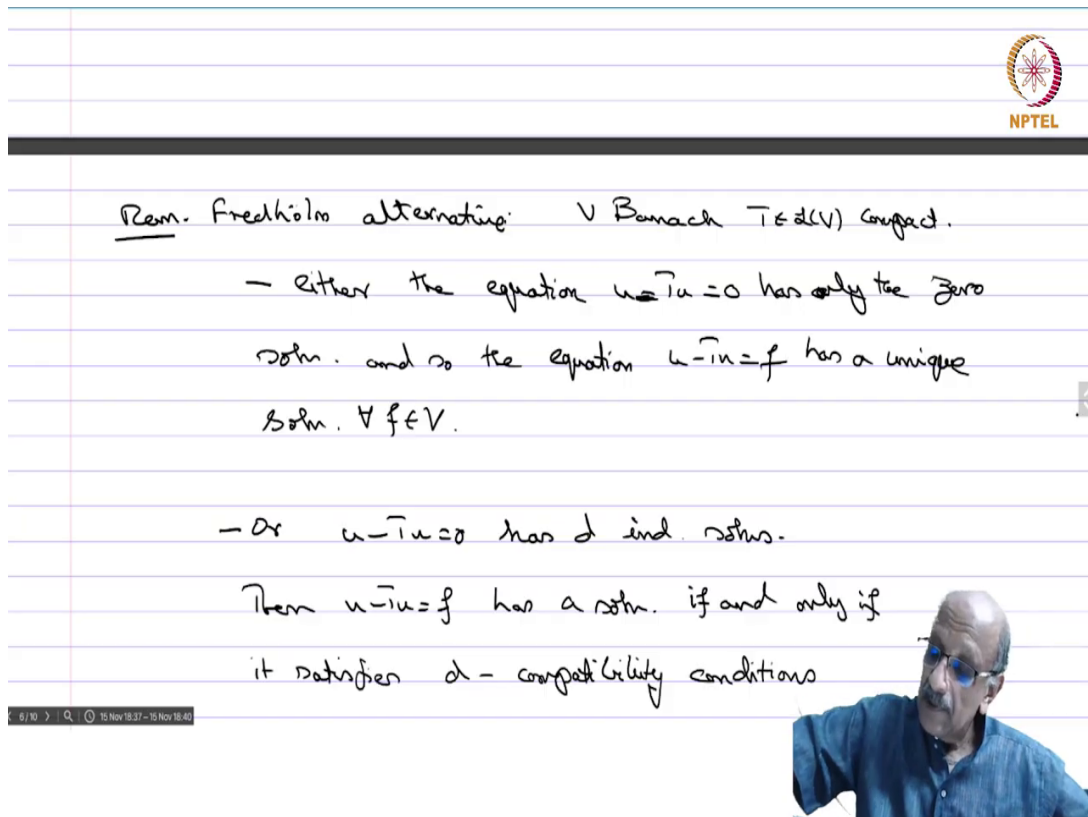 NPTEL
Rem. Fredholm alternative: V Banach T ∈ L(V) compact.
- either the equation u - Tu = 0 has only the zero
soln. and so the equation u - Tu = f has a unique
soln. ∀ f ∈ V.
- Or u - Tu = 0 has d ind. solns.
Then u - Tu = f has a soln. if and only if
it satisfies d - compatibility conditions
6/10 15 Nov 18:37 – 15 Nov 18:40